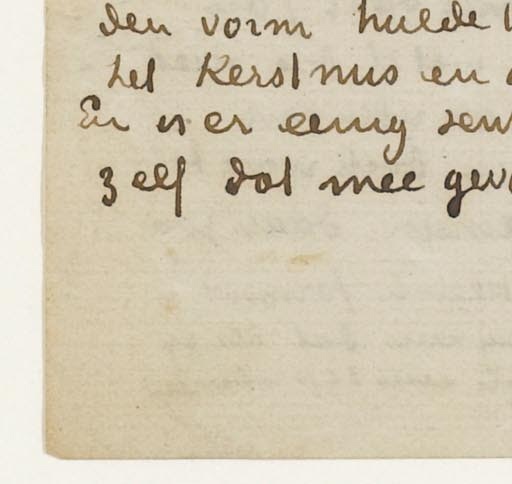 den vorm hulde
het Kerstmis en
En is er eenig
zelf dat mee